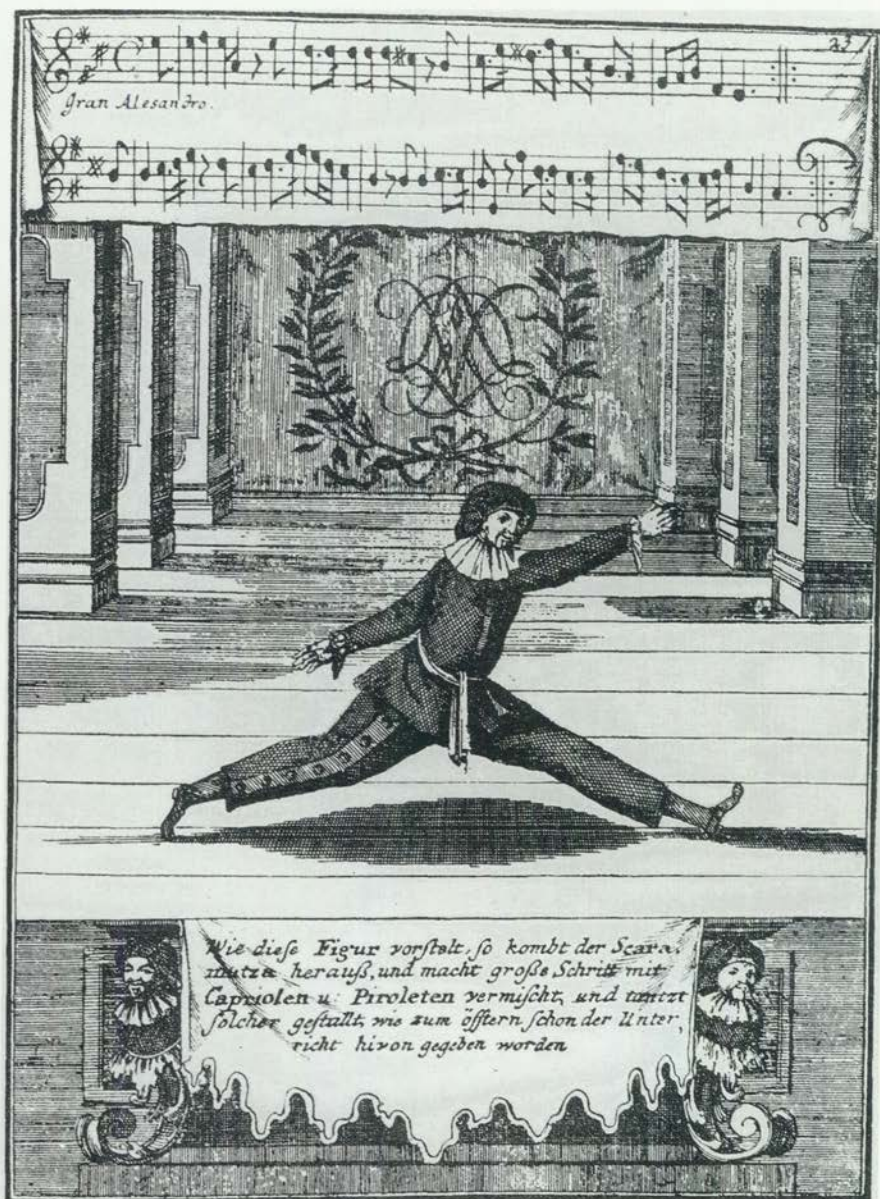 23
Gran Alesandro.
Wie diese Figur vorstelt, so kombt der Scara,
mutza herauß, und macht große Schritt mit
Capriolen u: Piroleten vermischt, und tantzt
solcher gestallt, wie zum öfftern schon der Unter,
richt hivon gegeben worden